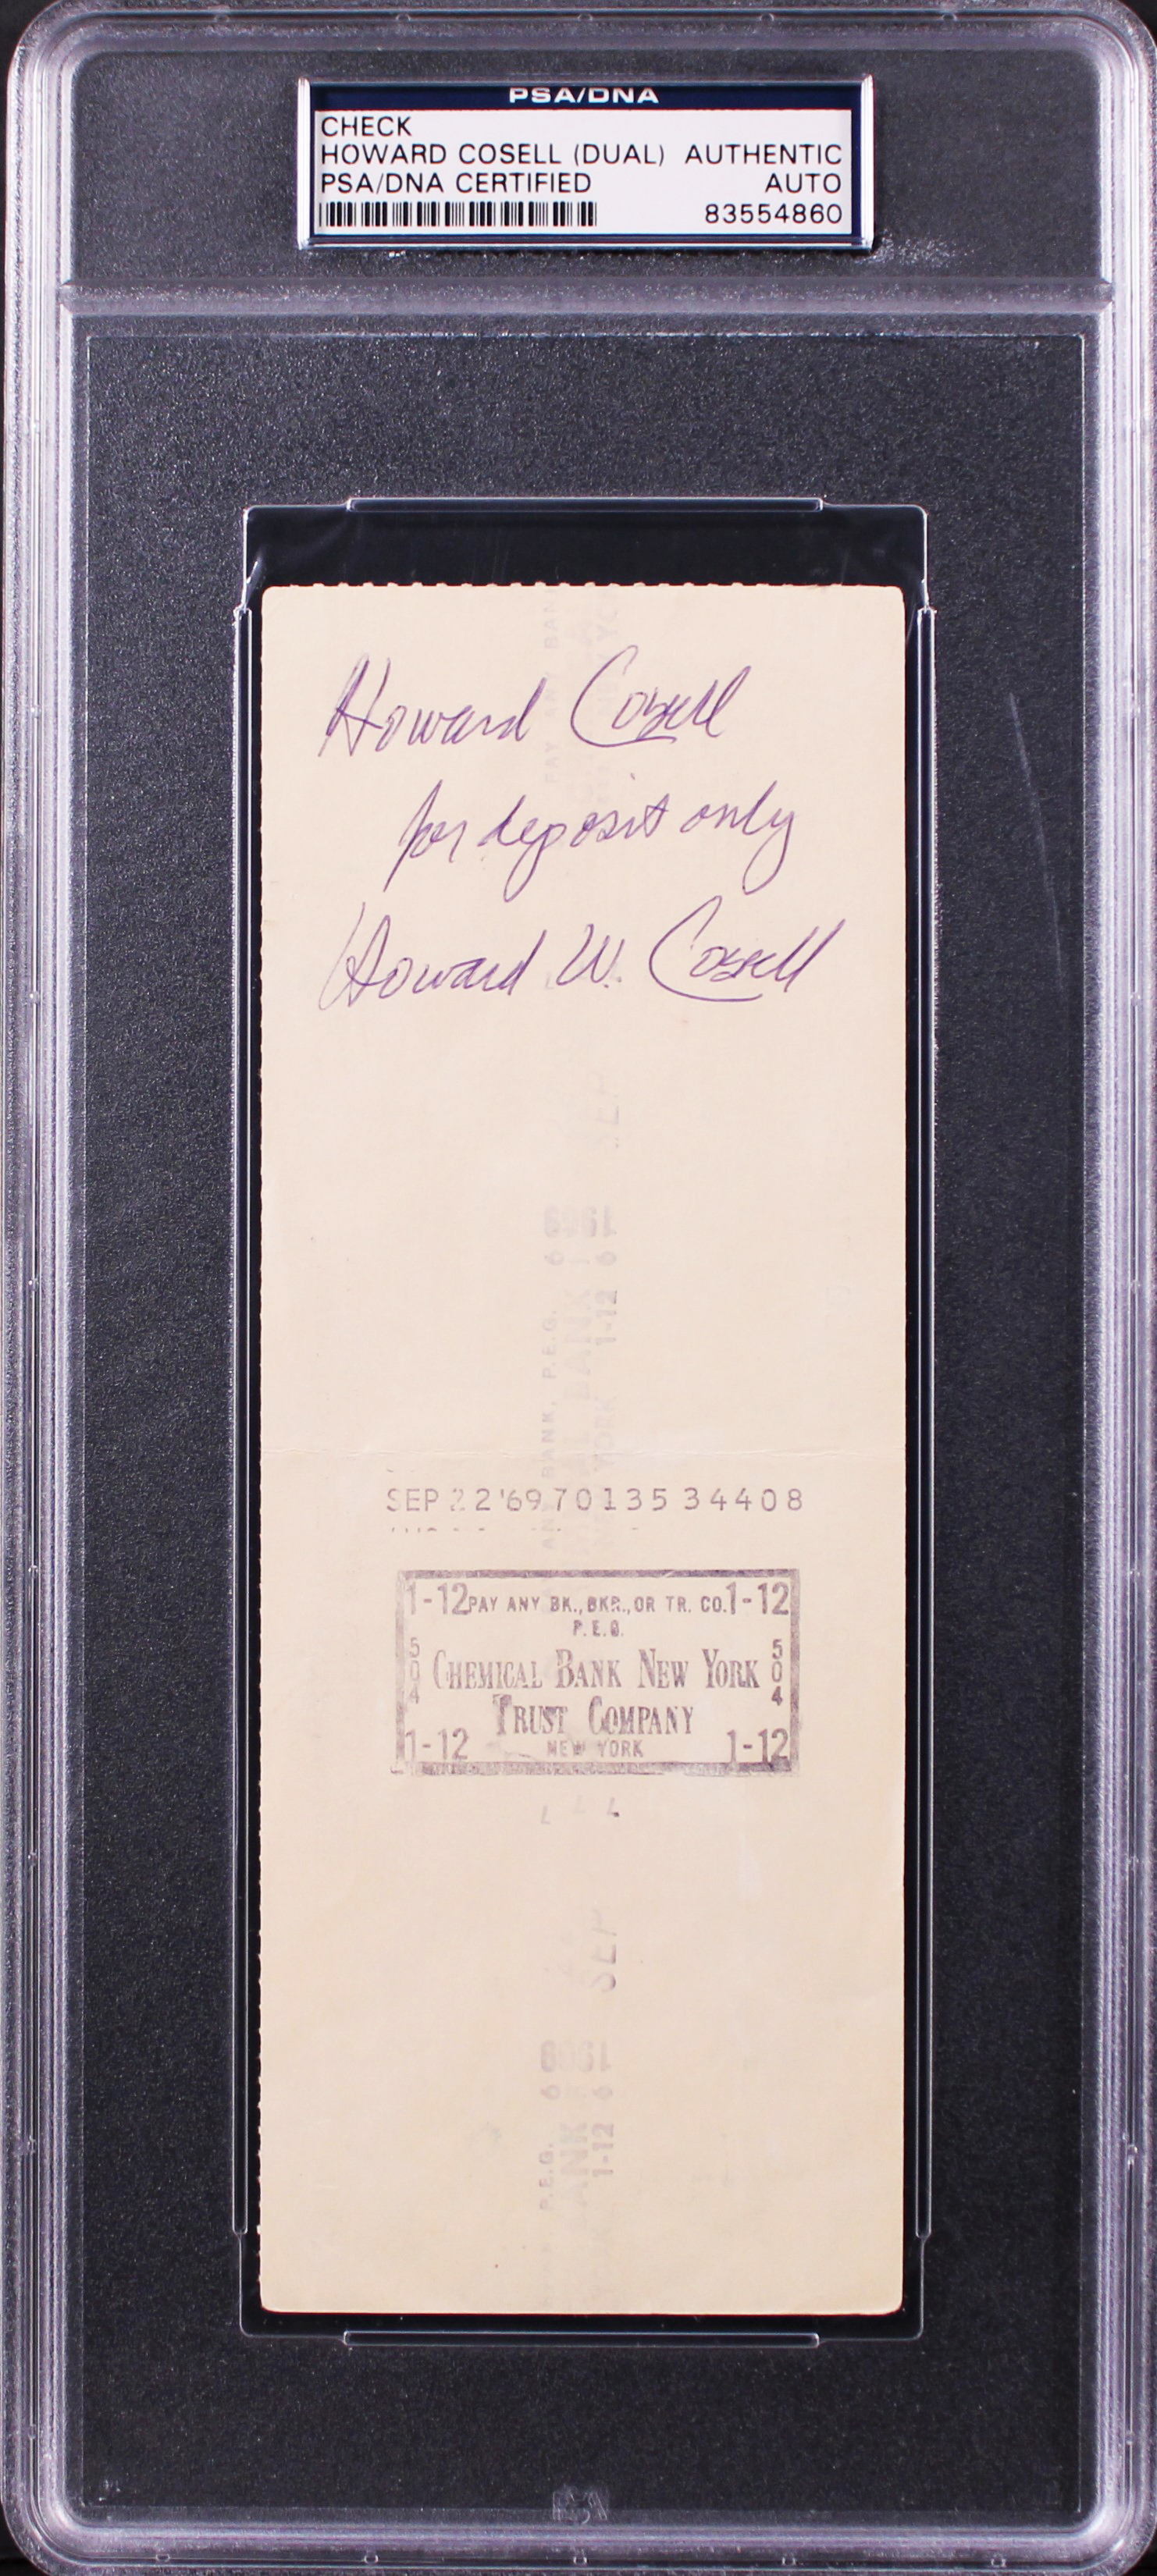 PSA/DNA
CHECK
HOWARD COSELL (DUAL) AUTHENTIC
PSA/DNA CERTIFIED AUTO
83554860
Howard Cosell
for deposit only
Howard W. Cosell
SEP 22'69 70135 34408
1-12 PAY ANY BK., BKR., OR TR. CO. 1-12
P.E.G.
504 CHEMICAL BANK NEW YORK 504
TRUST COMPANY
1-12 NEW YORK 1-12